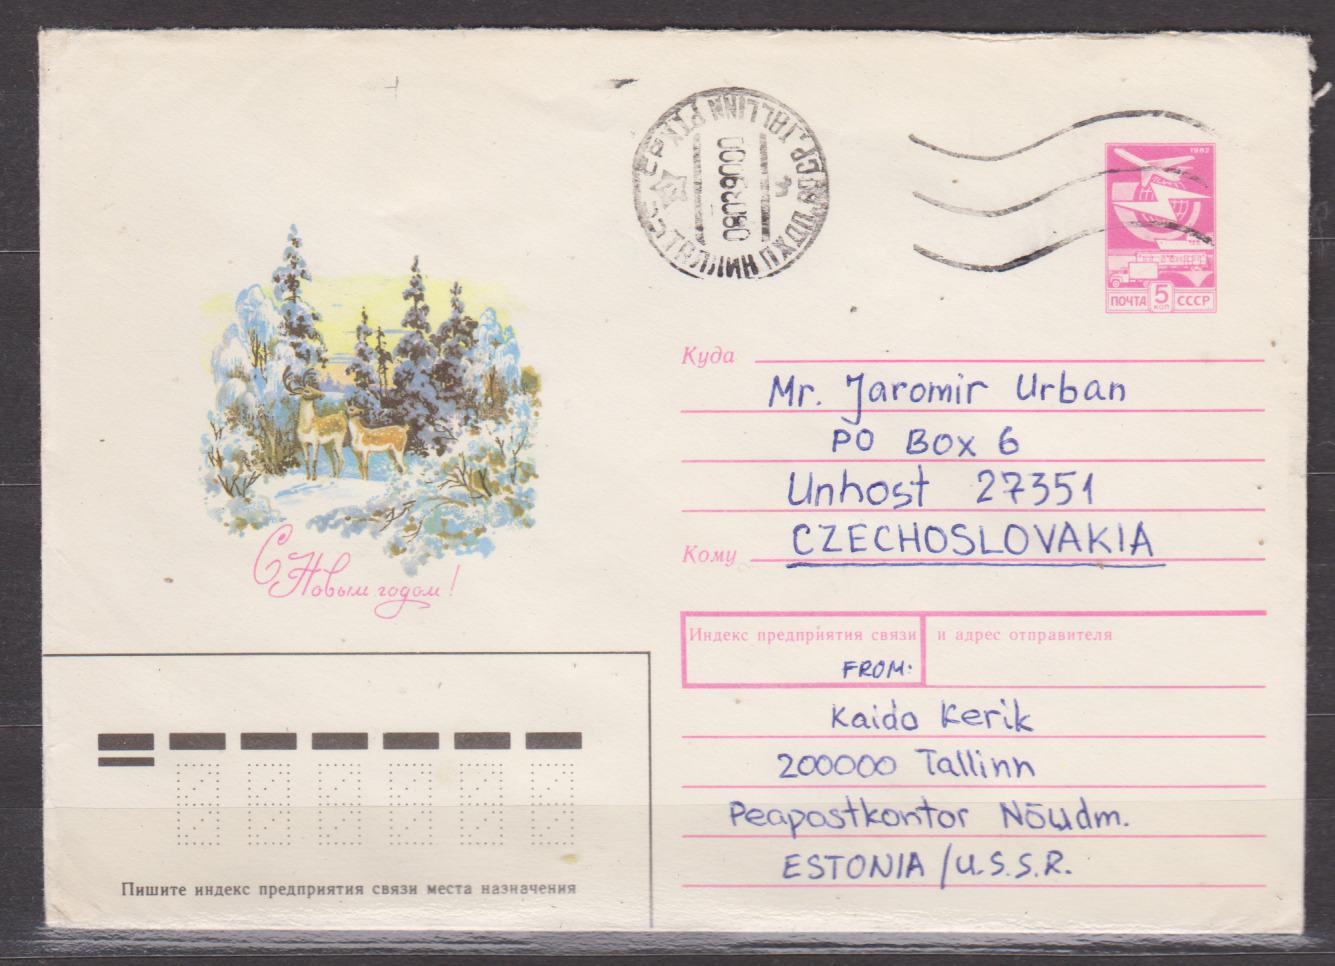 TALLINN PTK
ТАЛЛИНН
0803900
1982
ПОЧТА 5 КОП СССР
С Новым годом!
Куда
Mr. Jaromir Urban
PO BOX 6
Unhost 27351
Кому CZECHOSLOVAKIA
Индекс предприятия связи и адрес отправителя
FROM:
Kaido Kerik
200000 Tallinn
Peapostkontor Nõudm.
ESTONIA / U.S.S.R.
Пишите индекс предприятия связи места назначения